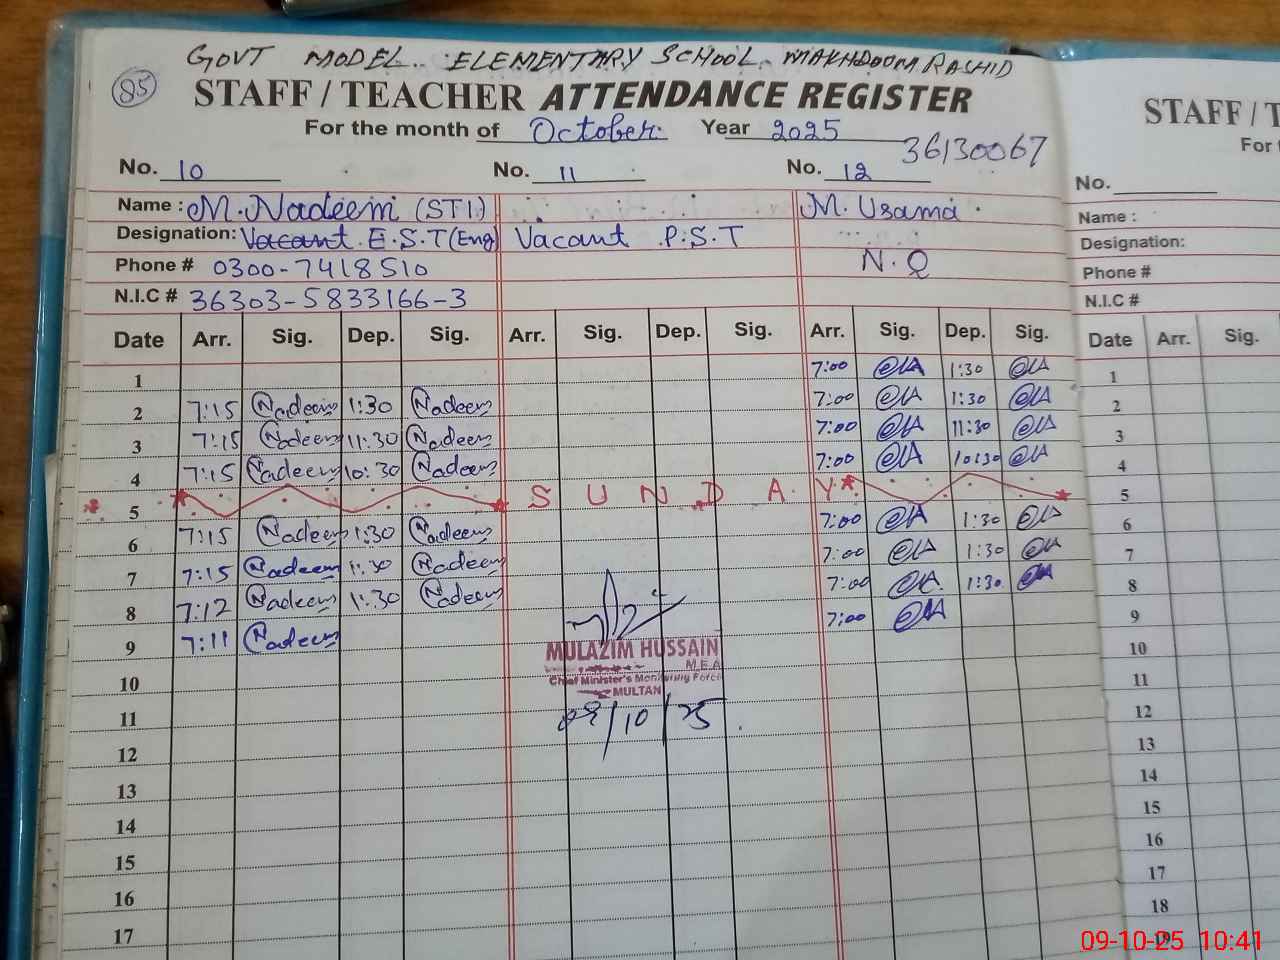 GOVT MODEL.. ELEMENTARY SCHOOL. MAKHDOOM RASHID
85
STAFF / TEACHER ATTENDANCE REGISTER
For the month of October. Year 2025
36130067
No. 10 No. 11 No. 12
Name : M. Nadeem (STI) M. Usama
Designation: Vacant E.S.T (Eng) Vacant P.S.T
N.Q
Phone # 0300-7418510
N.I.C # 36303-5833166-3
Date Arr. Sig. Dep. Sig. Arr. Sig. Dep. Sig. Arr. Sig. Dep. Sig.
1 7:00 1:30
2 7:15 Nadeem 1:30 Nadeem 7:00 1:30
3 7:15 Nadeem 11:30 Nadeem 7:00 11:30
4 7:15 Nadeem 10:30 Nadeem 7:00 10:30
5 SUNDAY
6 7:15 Nadeem 1:30 Nadeem 7:00 1:30
7 7:15 Nadeem 1:30 Nadeem 7:00 1:30
8 7:12 Nadeem 1:30 Nadeem 7:00 1:30
9 7:11 Nadeem 7:00
10
11
12
13
14
15
16
17
MULAZIM HUSSAIN
M.E.A
Chief Minister's Monitoring Force
MULTAN
09/10/25
STAFF / T
For t
No.
Name :
Designation:
Phone #
N.I.C #
Date Arr. Sig.
1
2
3
4
5
6
7
8
9
10
11
12
13
14
15
16
17
18
19
09-10-25 10:41